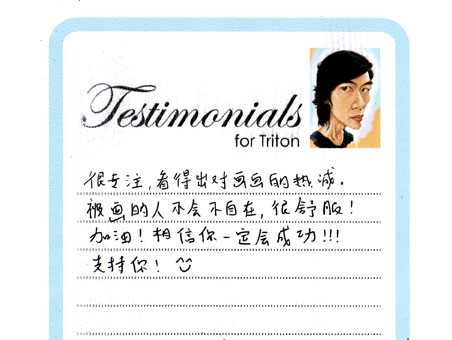 Testimonials
for Triton
很专注,看得出对画画的热诚.
被画的人亦会不自在,很舒服!
加油!相信你一定会成功!!!
支持你!